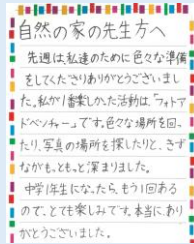 自然の家の先生方へ
先週は私達のために色々な準備
をしてくださりありがとうございまし
た。私が1番楽しかった活動は、「フォトア
ドベンチャー」です。色々な場所を回っ
たり、写真の場所を探したりと、きず
ながも、ともっと深まりました。
中学1年生になったら、もう1回ある
ので、とても楽しみです。本当にあり
がとうございました。